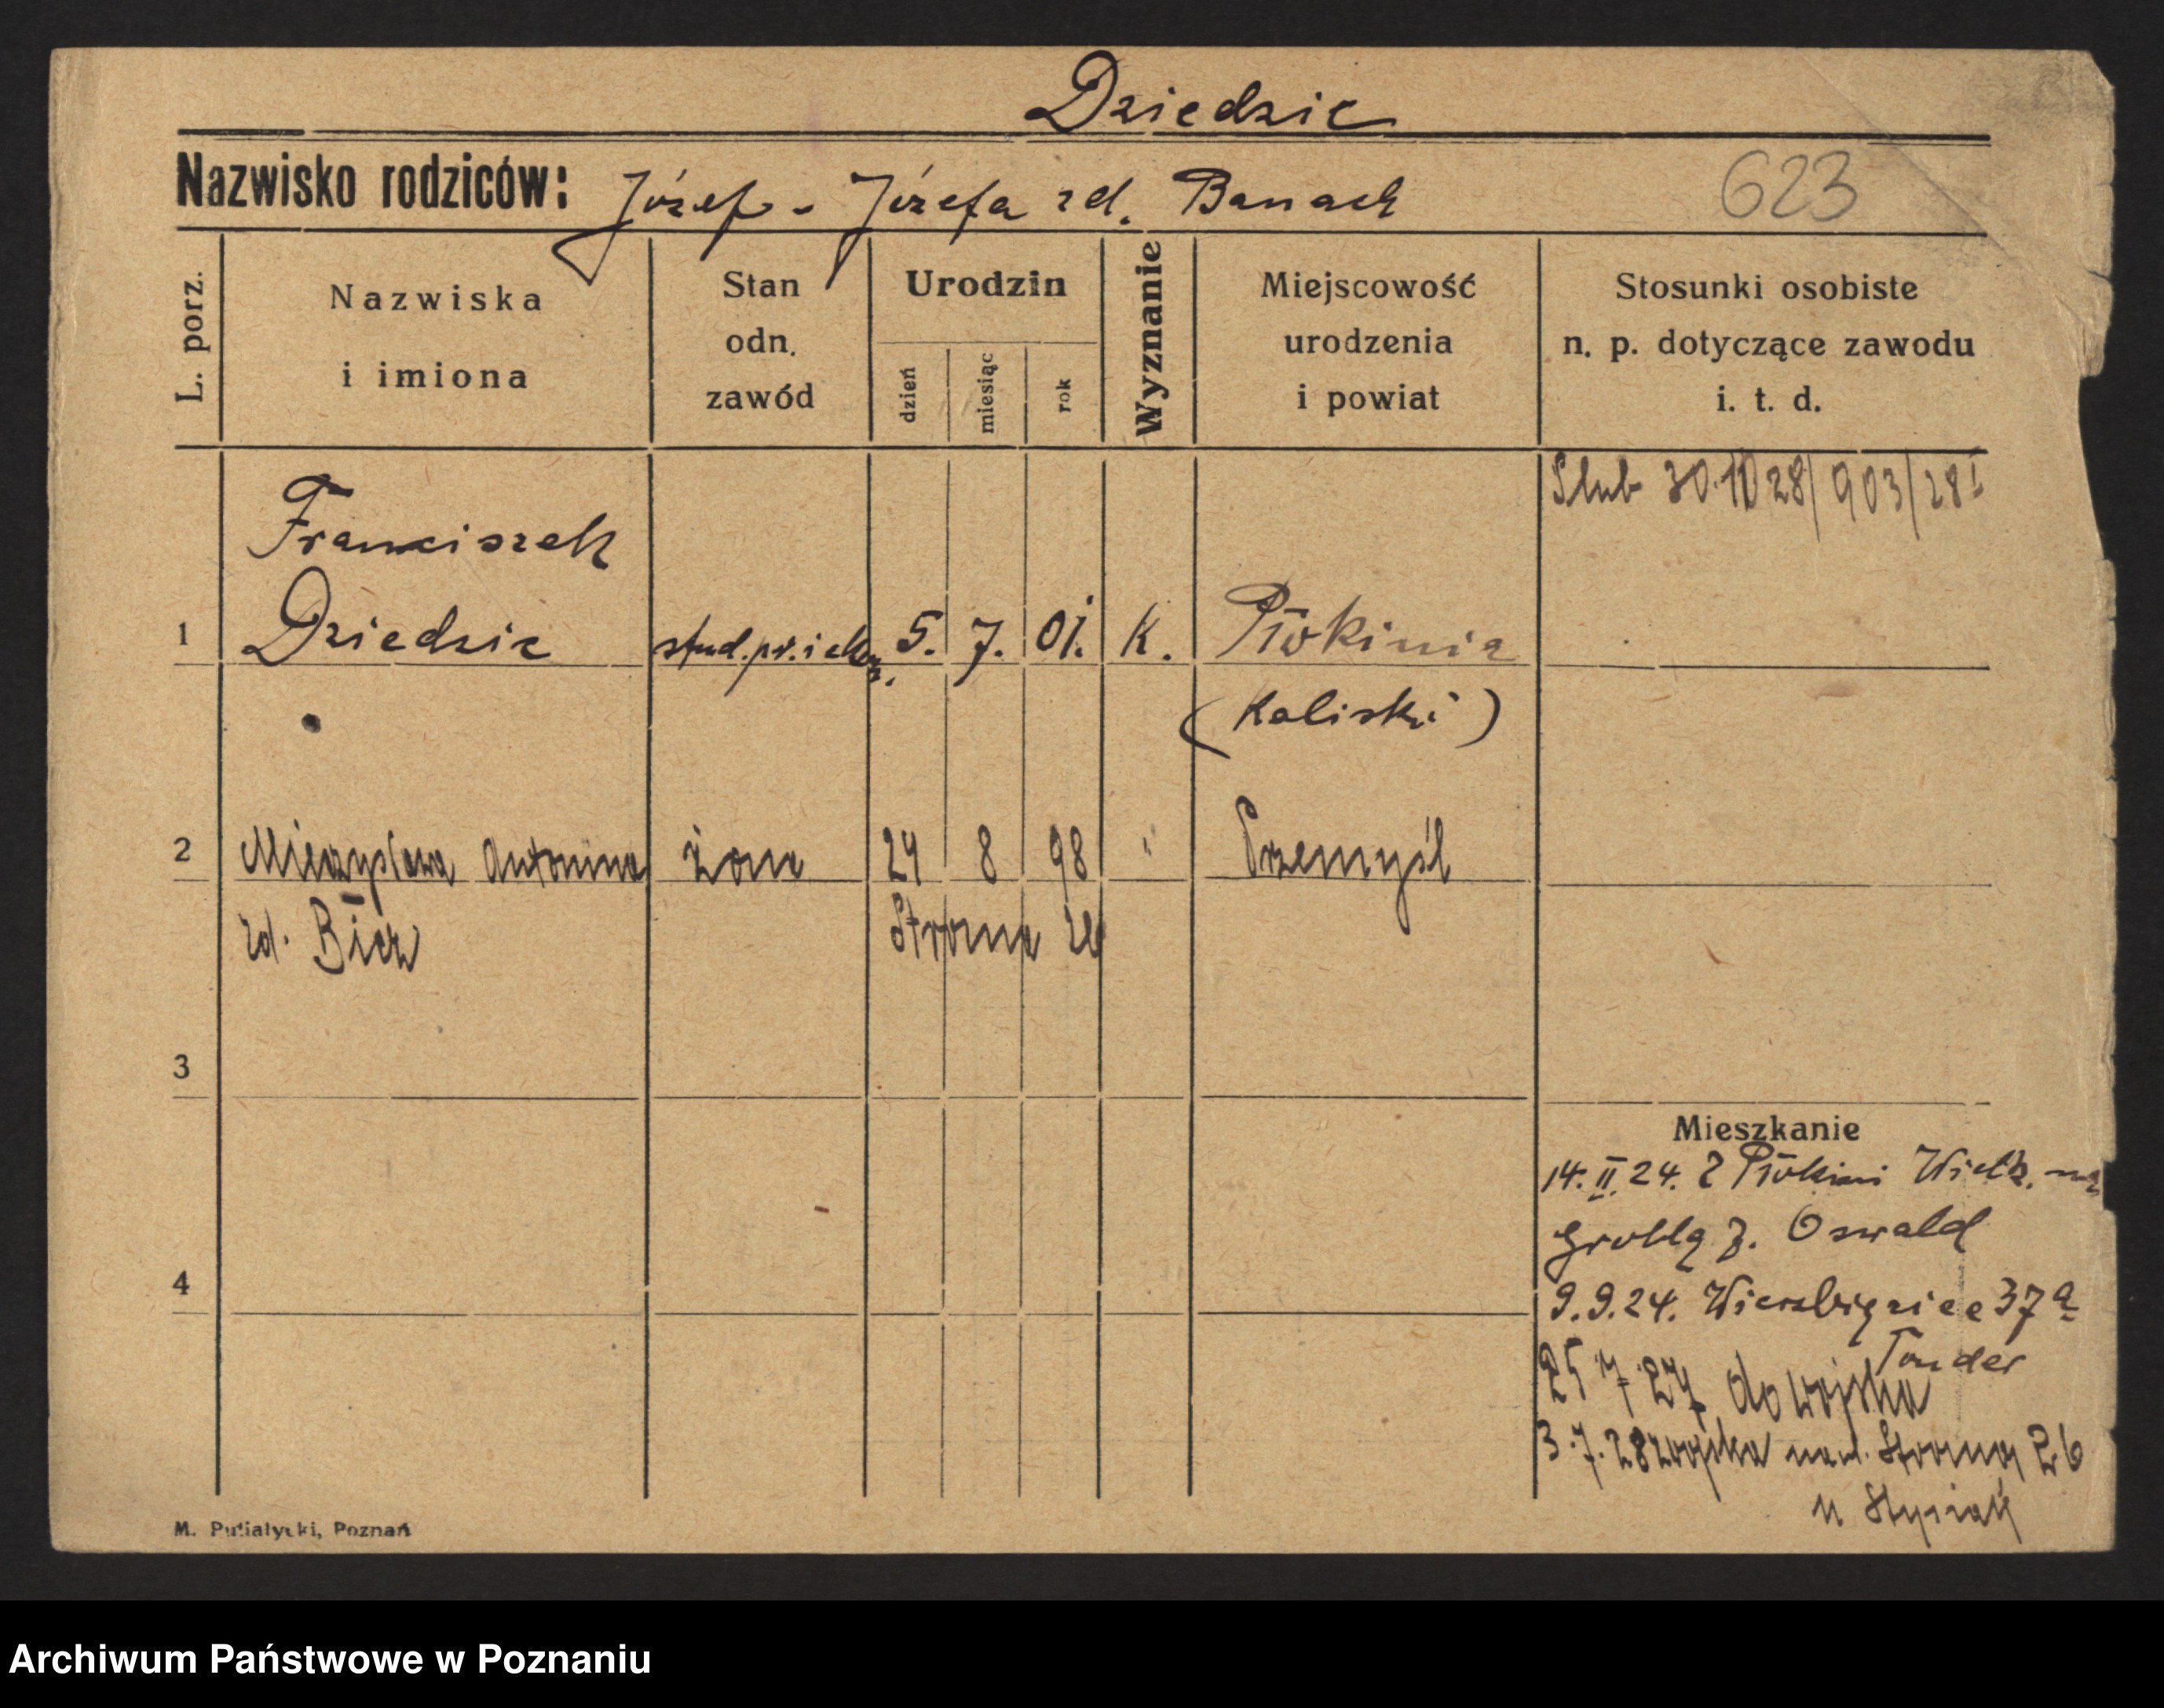 Dziedzic
Nazwisko rodziców: Józef - Józefa zd. Banach
623
L. porz.
Nazwiska
i imiona
Stan
odn.
zawód
Urodzin
dzień
miesiąc
rok
Wyznanie
Miejscowość
urodzenia
i powiat
Stosunki osobiste
n. p. dotyczące zawodu
i. t. d.
Ślub 30.10 28/903/28 I
Franciszek
1 Dziedzic stud. pr. i ekon. 5. 7. 01. K. Piwkinia
(Kaliski)
2 Mieczysława Antonina żona 24 8 98 " Przemyśl
zd. Bicz Stroma 26
3
Mieszkanie
14. II. 24. Z Wielk. na
Groblą 7. Oswald
4
9.9.24. Wierzbięcice 37a
Tonder
25 7 27 do wojska
3.7.28 z wojska Stroma 26
u Styziak
M. Putiatycki, Poznań
Archiwum Państwowe w Poznaniu